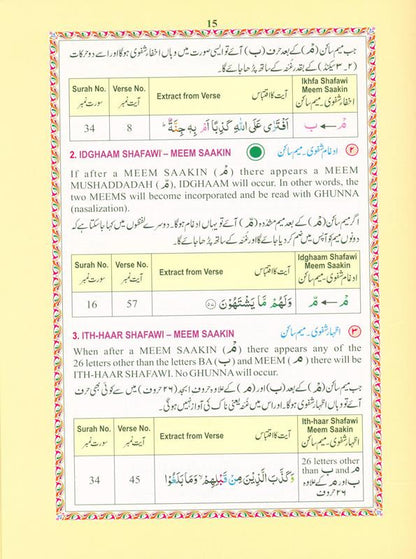 15
جب میم ساکن (مْ) کے بعد حرف (ب) آئے تو ایسی صورت میں وہاں اخفا شفوی ہوگا اور اسے دو حرکات
(۲-۳ سیکنڈ) کے بقدر غنہ کے ساتھ پڑھا جائے گا۔
Surah No. سورت نمبر
Verse No. آیت نمبر
Extract from Verse آیت کا اقتباس
Ikhfa Shafawi Meem Saakin
اخفار شفوی۔ میم ساکن
34
8
اَفْتَرٰى عَلَى اللّٰهِ كَذِبًا اَمْ بِهٖ جِنَّةٌ
مْ ← ب
2. IDGHAAM SHAFAWI – MEEM SAAKIN
② ادغام شفوی۔ میم ساکن
If after a MEEM SAAKIN (مْ) there appears a MEEM
MUSHADDADAH (مّ), IDGHAAM will occur. In other words, the
two MEEMS will become incorporated and be read with GHUNNA
(nasalization).
اگر میم ساکن (مْ) کے بعد میم مشدد (مّ) آئے تو یہاں ادغام ہوگا۔ دوسرے لفظوں میں کہا جا سکتا ہے کہ
دونوں میم کو آپس میں ضم کر دیا جائے گا اور غنہ کے ساتھ پڑھا جائے گا۔
Surah No. سورت نمبر
Verse No. آیت نمبر
Extract from Verse آیت کا اقتباس
Idghaam Shafawi Meem Saakin
ادغام شفوی۔ میم ساکن
16
57
وَلَهُمْ مَّا يَشْتَهُوْنَ
مْ ← مّ
3. ITH-HAAR SHAFAWI – MEEM SAAKIN
③ اظہار شفوی۔ میم ساکن
When after a MEEM SAAKIN (مْ) there appears any of the
26 letters other than the letters BA (ب) and MEEM (م) there will be
ITH-HAAR SHAFAWI. No GHUNNA will occur.
جب میم ساکن (مْ) کے بعد (ب) اور (م) کے علاوہ حروف ابجد (۲۶ حروف) میں سے کوئی بھی حرف
آئے تو وہاں اظہار شفوی ہوگا۔ اور اس میں غنہ یعنی ناک کی آواز نہیں ہوگی۔
Surah No. سورت نمبر
Verse No. آیت نمبر
Extract from Verse آیت کا اقتباس
Ith-haar Shafawi Meem Saakin
اظہار شفوی۔ میم ساکن
34
45
وَكَذَّبَ الَّذِيْنَ مِنْ قَبْلِهِمْ وَمَا بَلَغُوْا
26 letters other
than ب and م
م اور ب کے علاوہ
۲۶ حروف